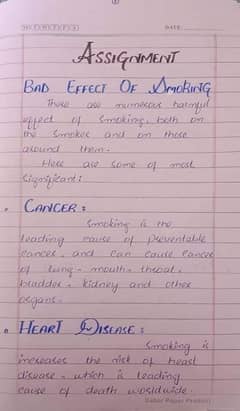 DATE:
ASSIGNMENT
BAD EFFECT OF SMOKING
There are numerous harmful
effect of smoking, both on
the smoker and on those
around them.
Here are some of most
significant:
CANCER:
Smoking is the
leading cause of preventable
cancer, and can cause cancer
of lung, mouth, throat,
bladder, kidney and other
organs.
HEART DISEASE:
Smoking is
increases the risk of heart
disease, which is leading
cause of death worldwide.
Sabir Paper Product